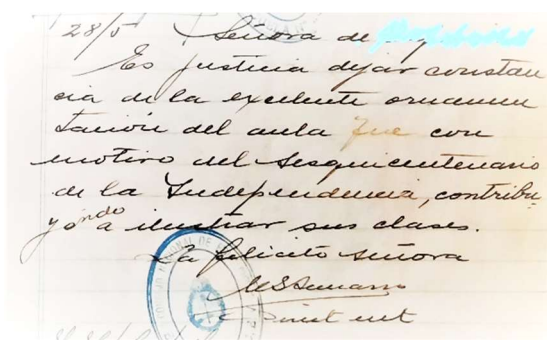 28/5 Señora de
Es justicia dejar constan
cia de la excelente ornamen
tación del aula que con
motivo del Sesquicentenario
de la Independencia, contribu
yendo a ilustrar sus clases.
La felicito Señora